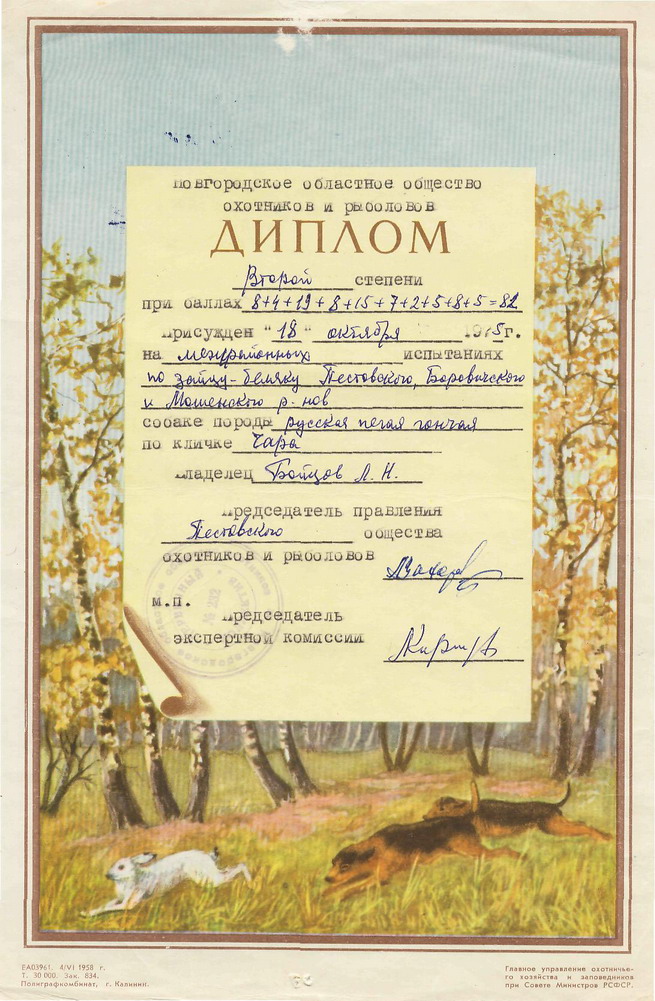 Новгородское областное общество
охотников и рыболовов
ДИПЛОМ
Второй степени
при баллах 8+4+19+8+15+7+2+5+8+5=82
Присужден "18" октября г.
на межрайонных испытаниях
по зайцу-беляку Пестовского, Боровичского
и Мошенского р-нов
собаке породы русская пегая гончая
по кличке Чара
Владелец Бойцов Л. Н.
Председатель правления
Пестовского общества
охотников и рыболовов
м.п.
Председатель
экспертной комиссии
ЕА03961. 4/VI 1958 г.
Т. 30 000. Зак. 834.
Полиграфкомбинат, г. Калинин.
Главное управление охотничье-
го хозяйства и заповедников
при Совете Министров РСФСР.